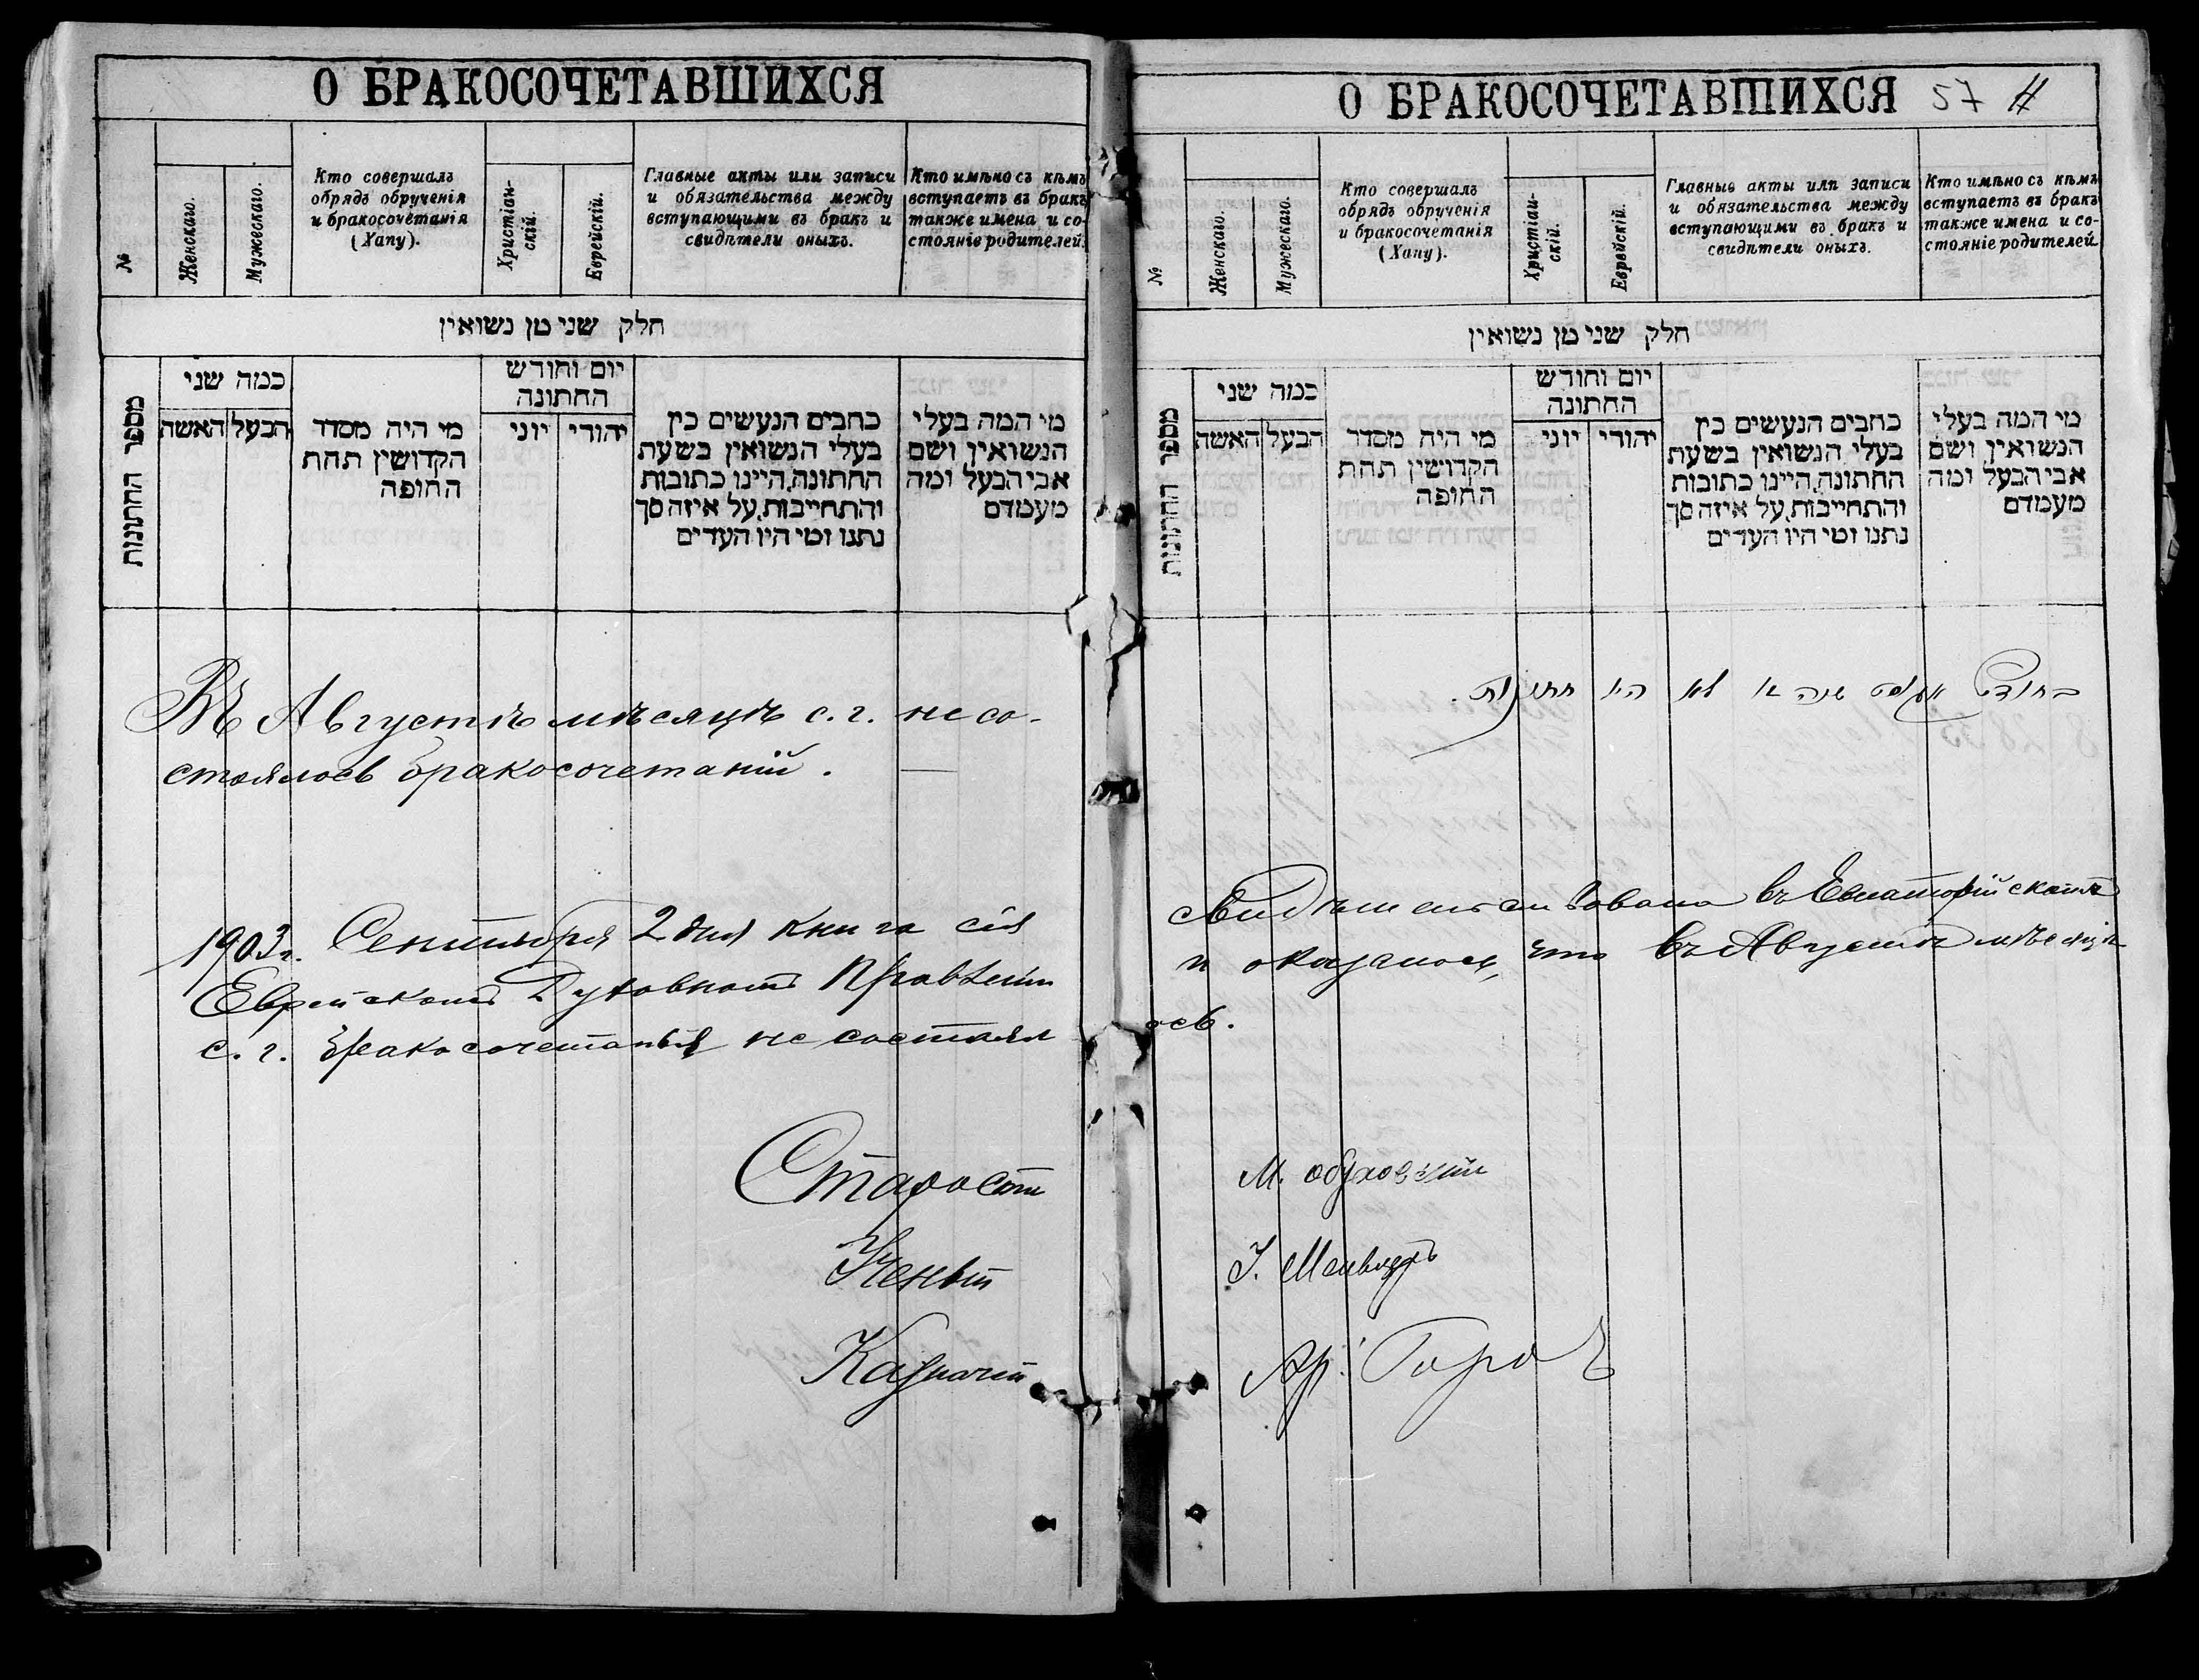 О БРАКОСОЧЕТАВШИХСЯ
№
Женскаго.
Мужескаго.
Кто совершалъ
обрядъ обрученія
и бракосочетанія
(Хапу).
Христіан-
скій.
Еврейскій.
Главные акты или записи
и обязательства между
вступающими въ бракъ и
свидѣтели оныхъ.
Кто имѣно съ кѣмъ
вступаетъ въ бракъ
также имена и со-
стояніе родителей.
חלק שני מן נשואין
מספר החתונות
כמה שני
הבעל
האשה
מי היה מסדר
הקדושין תחת
החופה
יום וחודש
החתונה
יהודי
יוני
כתבים הנעשים בין
בעלי הנשואין בשעת
החתונה, היינו כתובות
והתחייבות, על איזה סך
נתנו ומי היו העדים
מי המה בעלי
הנשואין ושם
אבי הבעל ומה
מעמדם
Въ Августѣ мѣсяцѣ с. г. не со-
стоялось бракосочетаній. —
1903 г. Сентября 2 дня книга сія
Еврейскомъ Духовномъ Правленіи
с. г. бракосочетанія не состоял
Староста
Ученый
Казначей
О БРАКОСОЧЕТАВШИХСЯ 57
№
Женскаго.
Мужескаго.
Кто совершалъ
обрядъ обрученія
и бракосочетанія
(Хапу).
Христіан-
скій.
Еврейскій.
Главные акты или записи
и обязательства между
вступающими въ бракъ и
свидѣтели оныхъ.
Кто имѣно съ кѣмъ
вступаетъ въ бракъ
также имена и со-
стояніе родителей.
חלק שני מן נשואין
מספר החתונות
כמה שני
הבעל
האשה
מי היה מסדר
הקדושין תחת
החופה
יום וחודש
החתונה
יהודי
יוני
כתבים הנעשים בין
בעלי הנשואין בשעת
החתונה, היינו כתובות
והתחייבות, על איזה סך
נתנו ומי היו העדים
מי המה בעלי
הנשואין ושם
אבי הבעל ומה
מעמדם
בחודש אוגוסט שנה זו לא היו חתונות.
свидѣтельствована въ Евпаторійскомъ
и оказалось, что въ Августѣ мѣсяцѣ
ось.
М.
І.